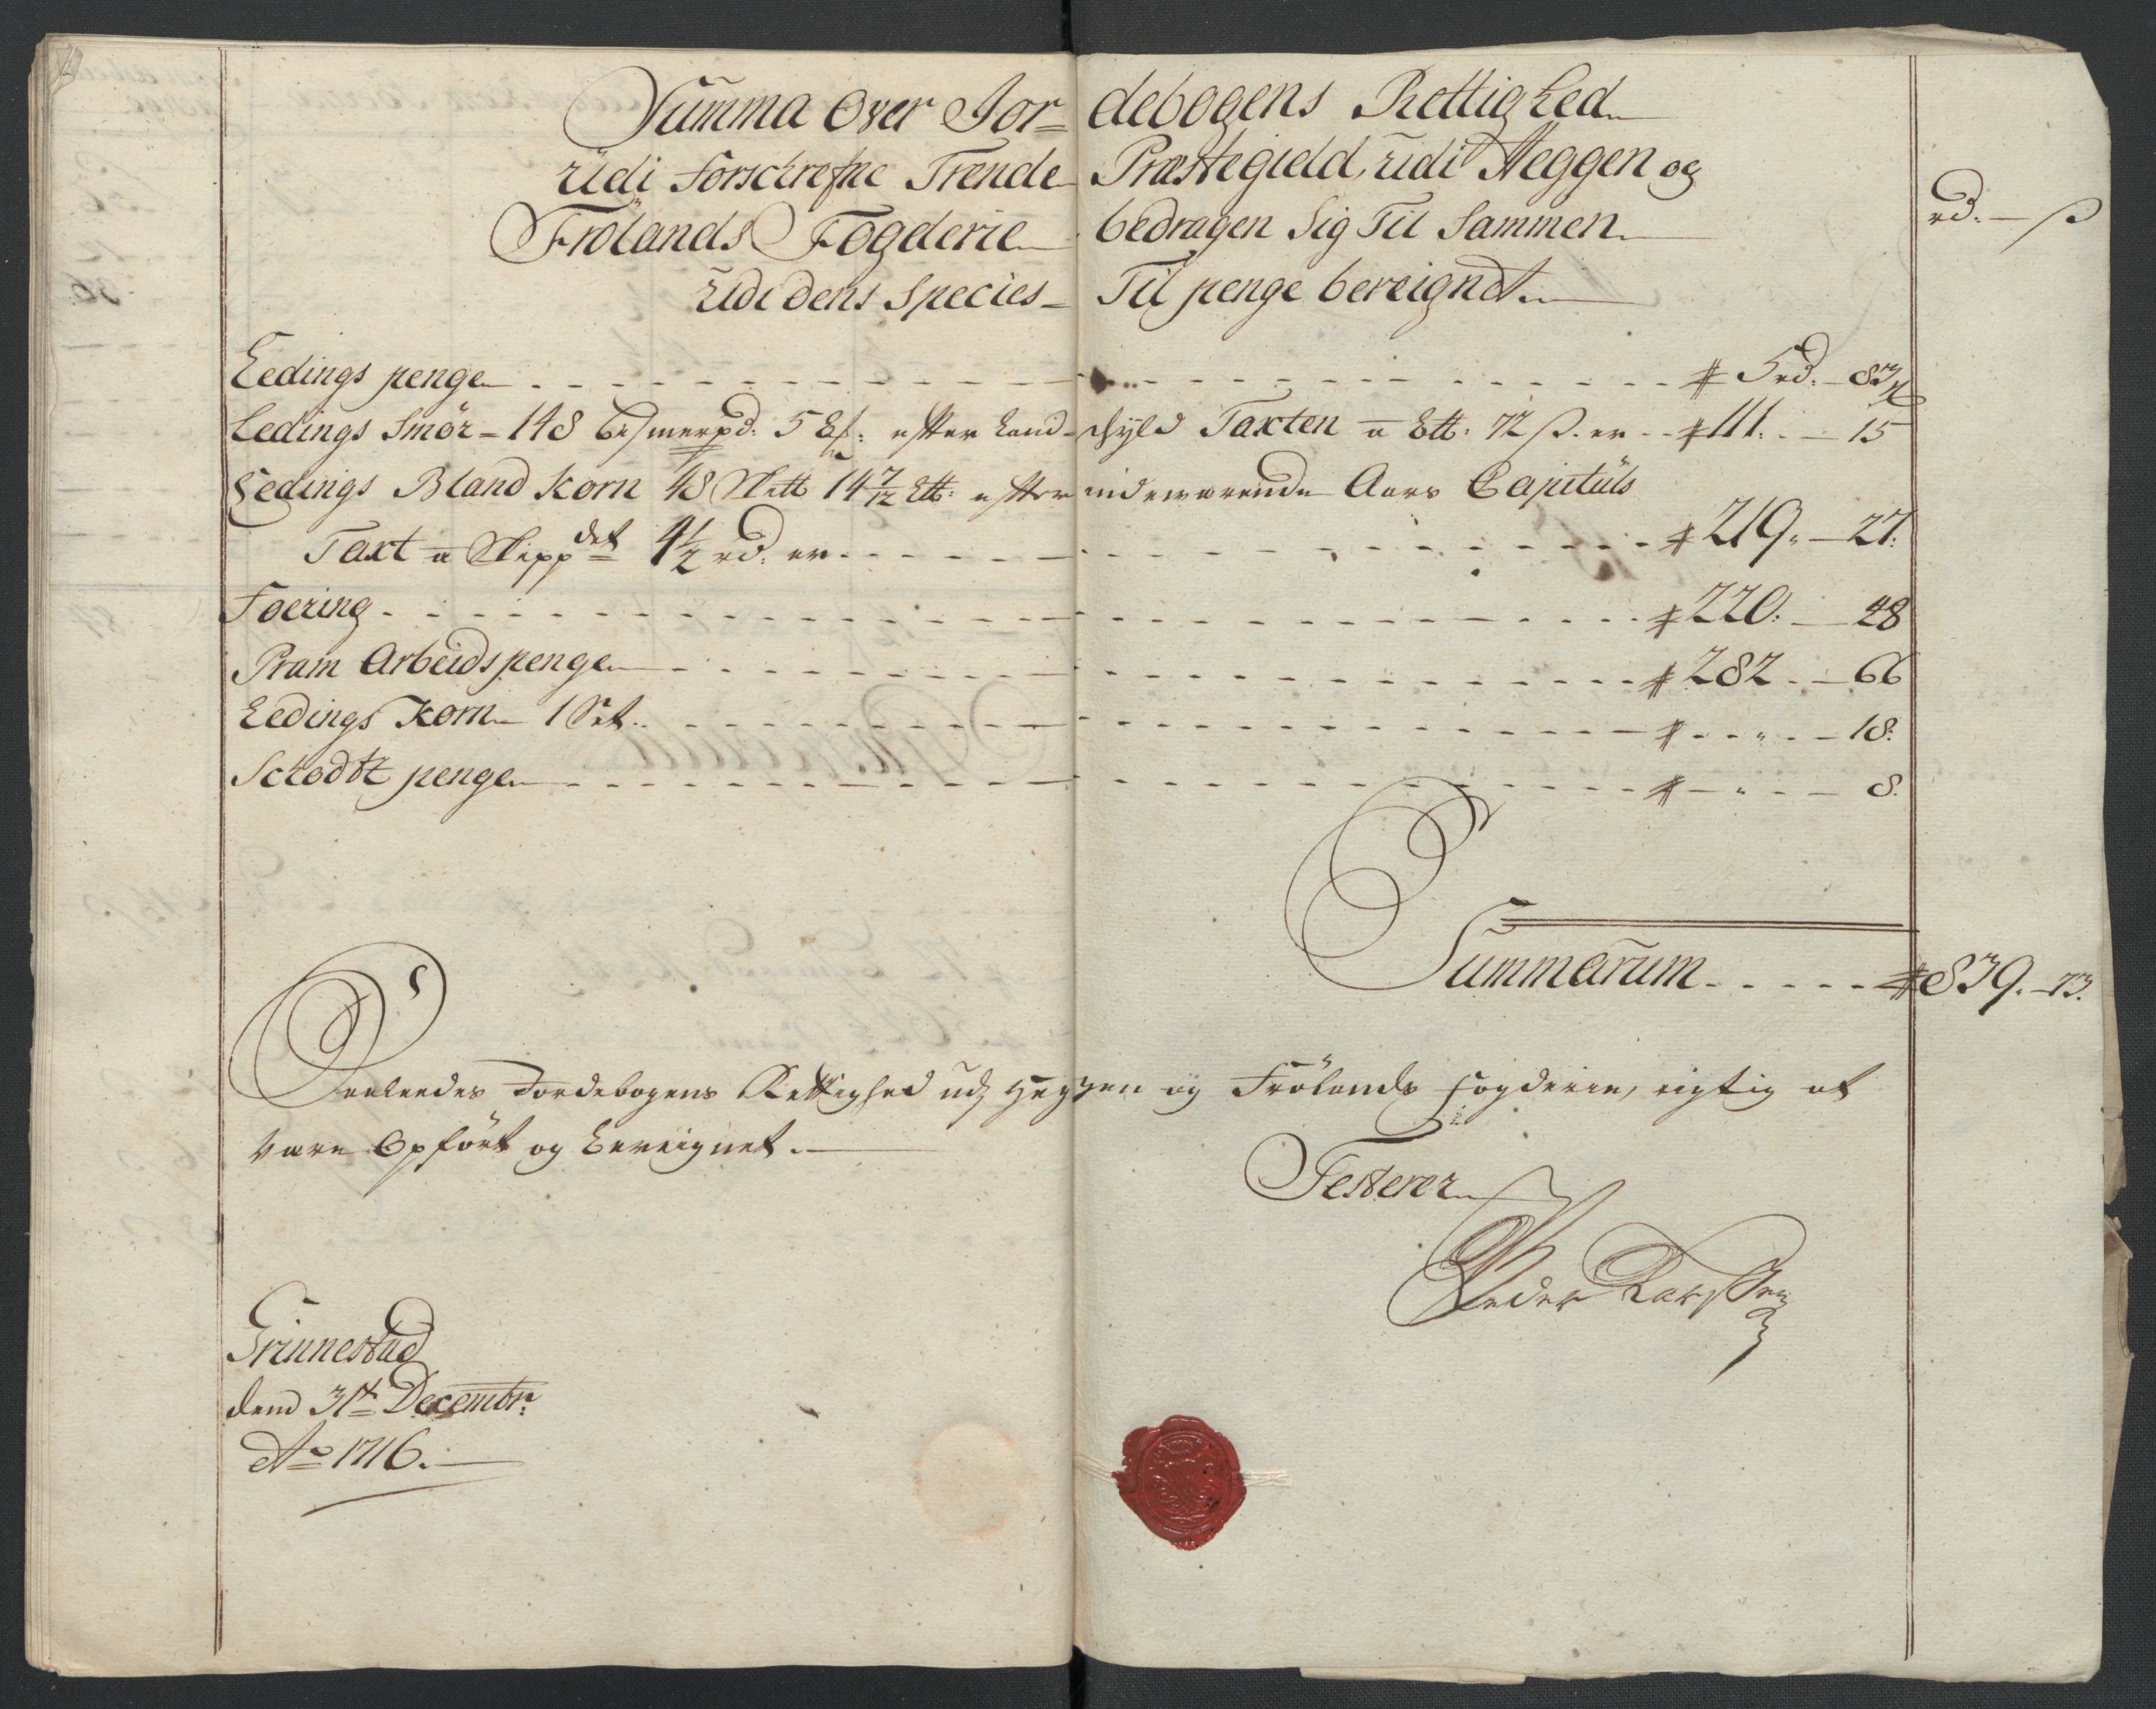 Summa Over Jor= debogens Rettighed
udi forschrefne Trende Præstegield, udi Heggen og
Frölands Fogderie bedragen Sig Til Sammen
rd. — ß
Udi dens Species= Til penge bereignet
Ledings penge # 5 rd. — 83 ß
Ledings Smör = 148 bismerpd. 5 efter Land=schyld Taxten a Ett: 72 ß. er # 111. — 15
Ledings Bland Korn 48 Skett 14 7/12 Ett: efter indeværende Aars Capituls
Taxt a Skippdet 4½ rd. er # 219. — 27.
Foering # 220. — 48
Pram Arbeids penge # 282. — 66
Ledings Korn 1 Set. # " — 18.
Schodtz penge # " — 8.
Summarum # 839. — 73.
Saaleedes Jordebogens Rettighed udj Heggen og Frölands Fogderie, rigtig at
være Opfört og bereignet.
Testerer
Peder Larssen
Grinnestad
dend 31te Decembr.
Ao 1716.